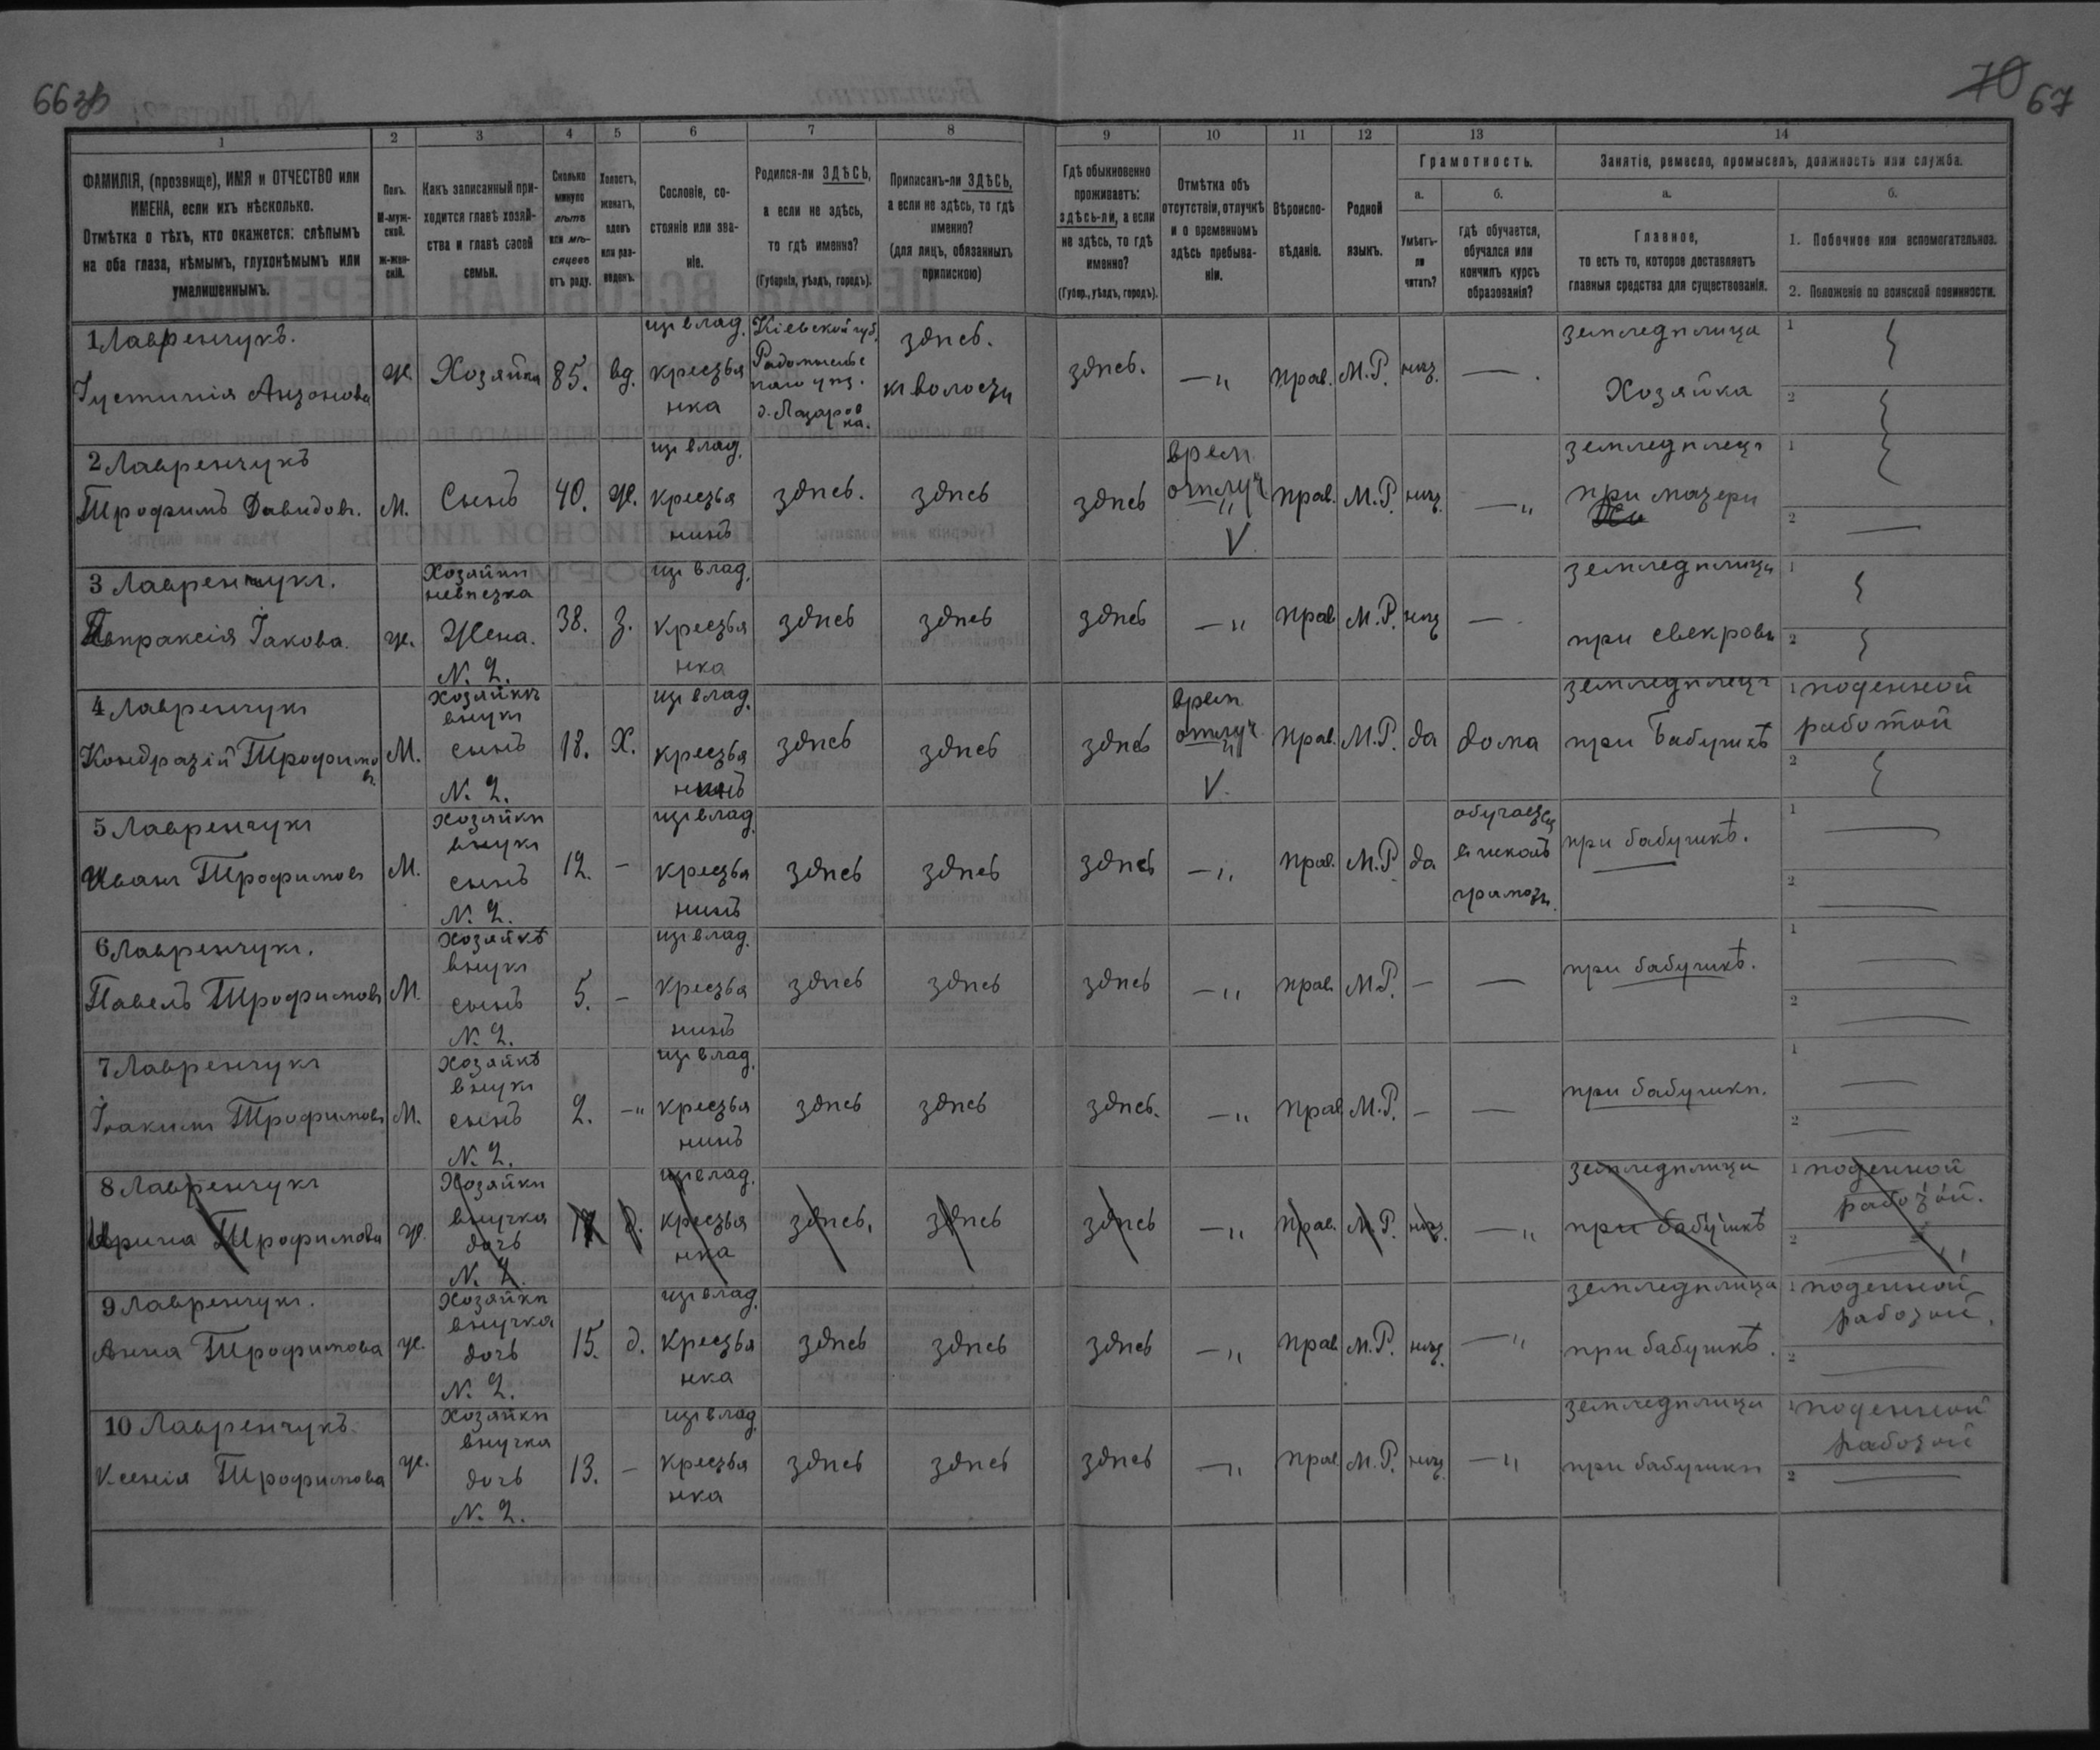 66 зв
70 67
1 2 3 4 5 6 7 8 9 10 11 12 13 14
ФАМИЛІЯ, (прозвище), ИМЯ и ОТЧЕСТВО или ИМЕНА, если ихъ нѣсколько.
Отмѣтка о тѣхъ, кто окажется: слѣпымъ на оба глаза, нѣмымъ, глухонѣмымъ или умалишеннымъ.
Полъ.
М-мужской.
Ж-женскій.
Какъ записанный приходится главѣ хозяйства и главѣ своей семьи.
Сколько минуло лѣтъ или мѣсяцевъ отъ роду.
Холостъ, женатъ, вдовъ или разведенъ.
Сословіе, состояніе или званіе.
Родился-ли ЗДѢСЬ, а если не здѣсь, то гдѣ именно?
(Губернія, уѣздъ, городъ).
Приписанъ-ли ЗДѢСЬ, а если не здѣсь, то гдѣ именно?
(для лицъ, обязанныхъ припискою)
Гдѣ обыкновенно проживаетъ: здѣсь-ли, а если не здѣсь, то гдѣ именно?
(Губер., уѣздъ, городъ).
Отмѣтка объ отсутствіи, отлучкѣ и о временномъ здѣсь пребываніи.
Вѣроисповѣданіе.
Родной языкъ.
Грамотность.
а.
Умѣетъ-ли читать?
б.
гдѣ обучается, обучался или кончилъ курсъ образованія?
Занятіе, ремесло, промыселъ, должность или служба.
а.
Главное,
то есть то, которое доставляетъ главныя средства для существованія.
б.
1. Побочное или вспомогательное.
2. Положеніе по воинской повинности.
1 Лавренчукъ.
Іустинія Антонова
ж. Хозяйка 85. вд. изъ влад. крестьянка
Кіевской губ. Радомысльскаго уѣз. д. Лазаровка.
здѣсь. къ волости
здѣсь. —„ прав. М.Р. нѣт. — земледѣлица Хозяйка 1 2
2 Лавренчукъ
Трофимъ Давидовъ.
М. Сынъ 40. ж. изъ влад. крестьянинъ здѣсь. здѣсь
здѣсь врем отлуч „ V прав. М.Р. нѣт. —„ земледѣлецъ при матери 1 2 —
3 Лавренчукъ.
Евпраксія Іакова.
ж. Хозяйки невѣстка Жена. N. 2. 38. з. изъ влад. крестьянка здѣсь здѣсь
здѣсь —„ прав М.Р. нѣт — земледѣлица при свекрови 1 2
4 Лавренчукъ
Кондратій Трофимовъ
М. Хозяйкѣ внукъ сынъ N. 2. 18. Х. изъ влад. крестьянинъ здѣсь здѣсь
здѣсь врем отлуч „ V. прав. М.Р. да дома земледѣлецъ при бабушкѣ 1 поденной работой 2
5 Лавренчукъ
Иванъ Трофимовъ
М. Хозяйки внукъ сынъ N. 2. 12. – изъ влад. крестьянинъ здѣсь здѣсь
здѣсь —„ прав. М.Р. да обучается въ школѣ грамоты. при бабушкѣ. 1 — 2 —
6 Лавренчукъ.
Павелъ Трофимовъ
М. Хозяйкѣ внукъ сынъ N. 2. 5. – изъ влад. крестьянинъ здѣсь здѣсь
здѣсь —„ прав. М.Р. – — при бабушкѣ. 1 — 2 —
7 Лавренчукъ
Іоакимъ Трофимовъ
М. Хозяйкѣ внукъ сынъ N. 2. 2. –„ изъ влад. крестьянинъ здѣсь здѣсь
здѣсь. —„ прав М.Р. – — при бабушки. 1 — 2 —
8 Лавренчукъ
Ирина Трофимова
ж. Хозяйки внучка дочь N. 2. 17 д. изъ влад. крестьянка здѣсь. здѣсь
здѣсь —„ прав. М.Р. нѣт. —„ земледѣлица при бабушкѣ 1 поденной работой. 2 —
9 Лавренчукъ.
Анна Трофимова
ж. Хозяйки внучка дочь N. 2. 15. д. изъ влад. крестьянка здѣсь здѣсь
здѣсь —„ прав М.Р. нѣт. —„ земледѣлица при бабушкѣ. 1 поденной работой. 2 —
10 Лавренчукъ.
Ксенія Трофимова
ж. Хозяйки внучка дочь N. 2. 13. – изъ влад. крестьянка здѣсь здѣсь
здѣсь —„ прав М.Р. нѣт. —„ земледѣлица при бабушки 1 поденной работой 2 —